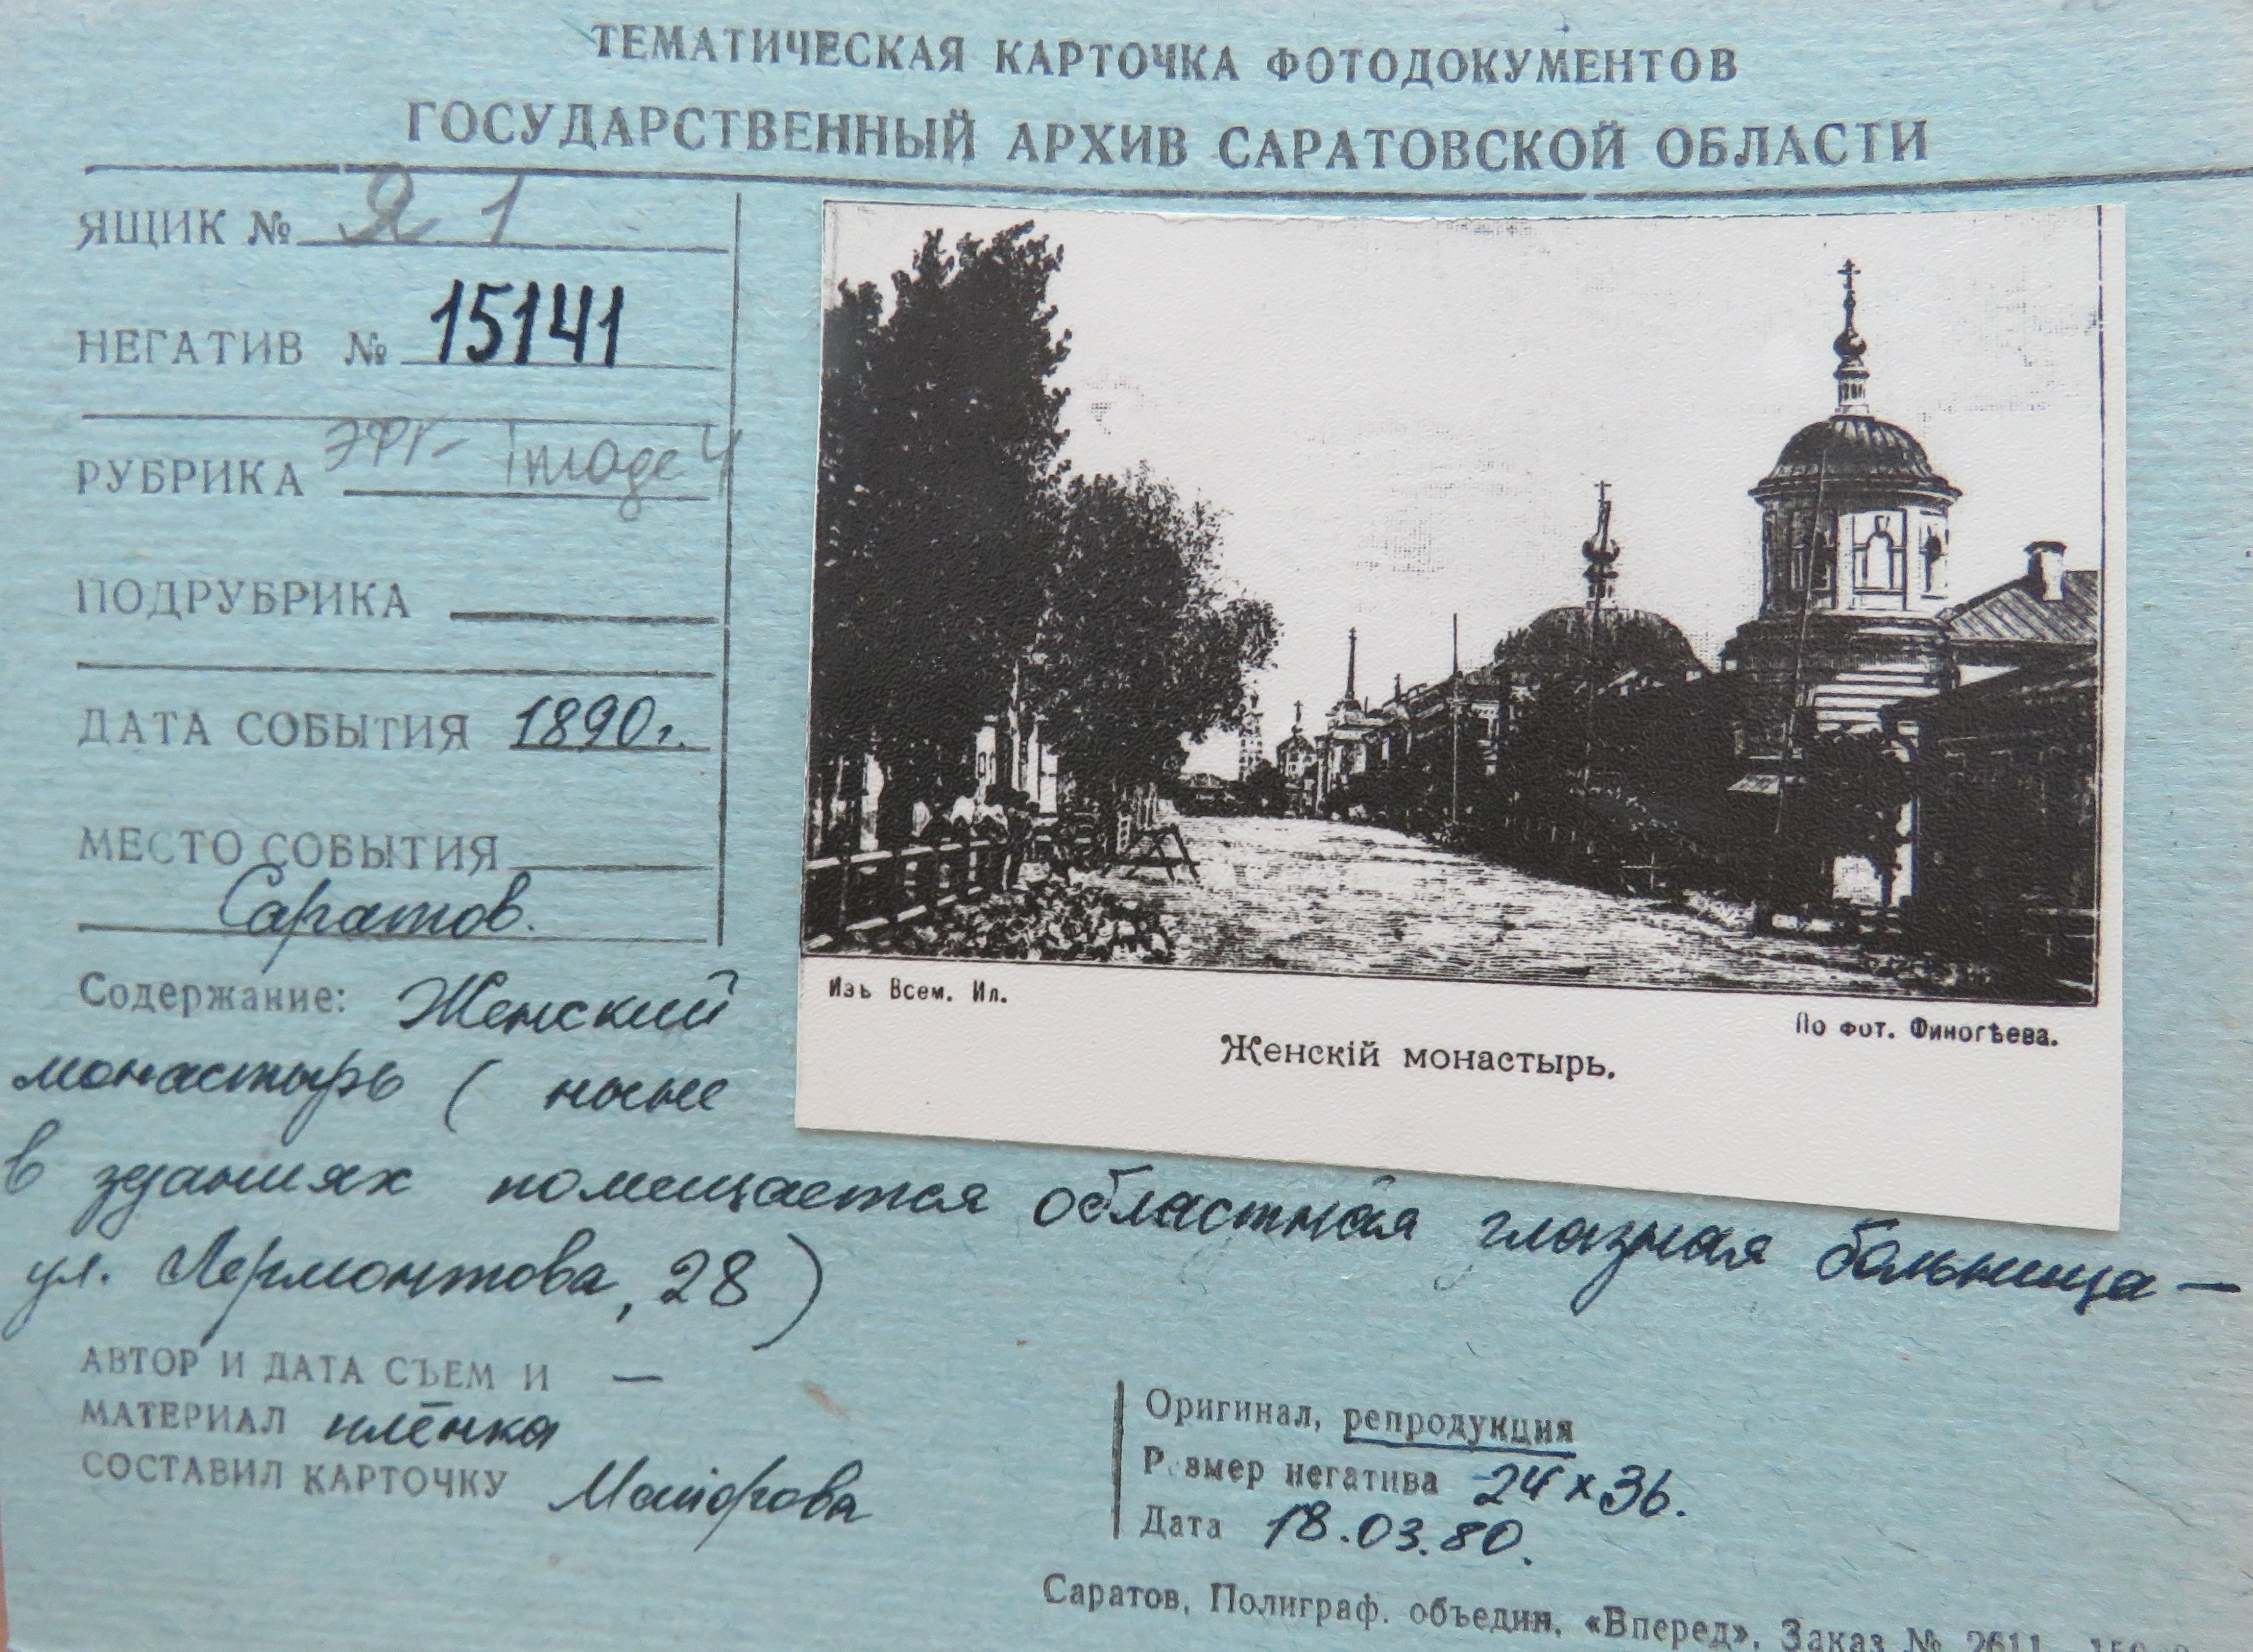 ТЕМАТИЧЕСКАЯ КАРТОЧКА ФОТОДОКУМЕНТОВ
ГОСУДАРСТВЕННЫЙ АРХИВ САРАТОВСКОЙ ОБЛАСТИ
ЯЩИК № Я 1
НЕГАТИВ № 15141
РУБРИКА Image 4
ПОДРУБРИКА
ДАТА СОБЫТИЯ 1890г.
МЕСТО СОБЫТИЯ
Саратов.
Изъ Всем. Ил.
По фот. Финогѣева.
Женскій монастырь.
Содержание: Женский
монастырь ( ныне
в зданиях помещается областная глазная больница —
ул. Лермонтова, 28 )
АВТОР И ДАТА СЪЕМ И —
МАТЕРИАЛ плёнка
СОСТАВИЛ КАРТОЧКУ Майорова
Оригинал, репродукция
Размер негатива 24 х 36.
Дата 18.03.80.
Саратов, Полиграф. объедин. «Вперед», Заказ № 2611